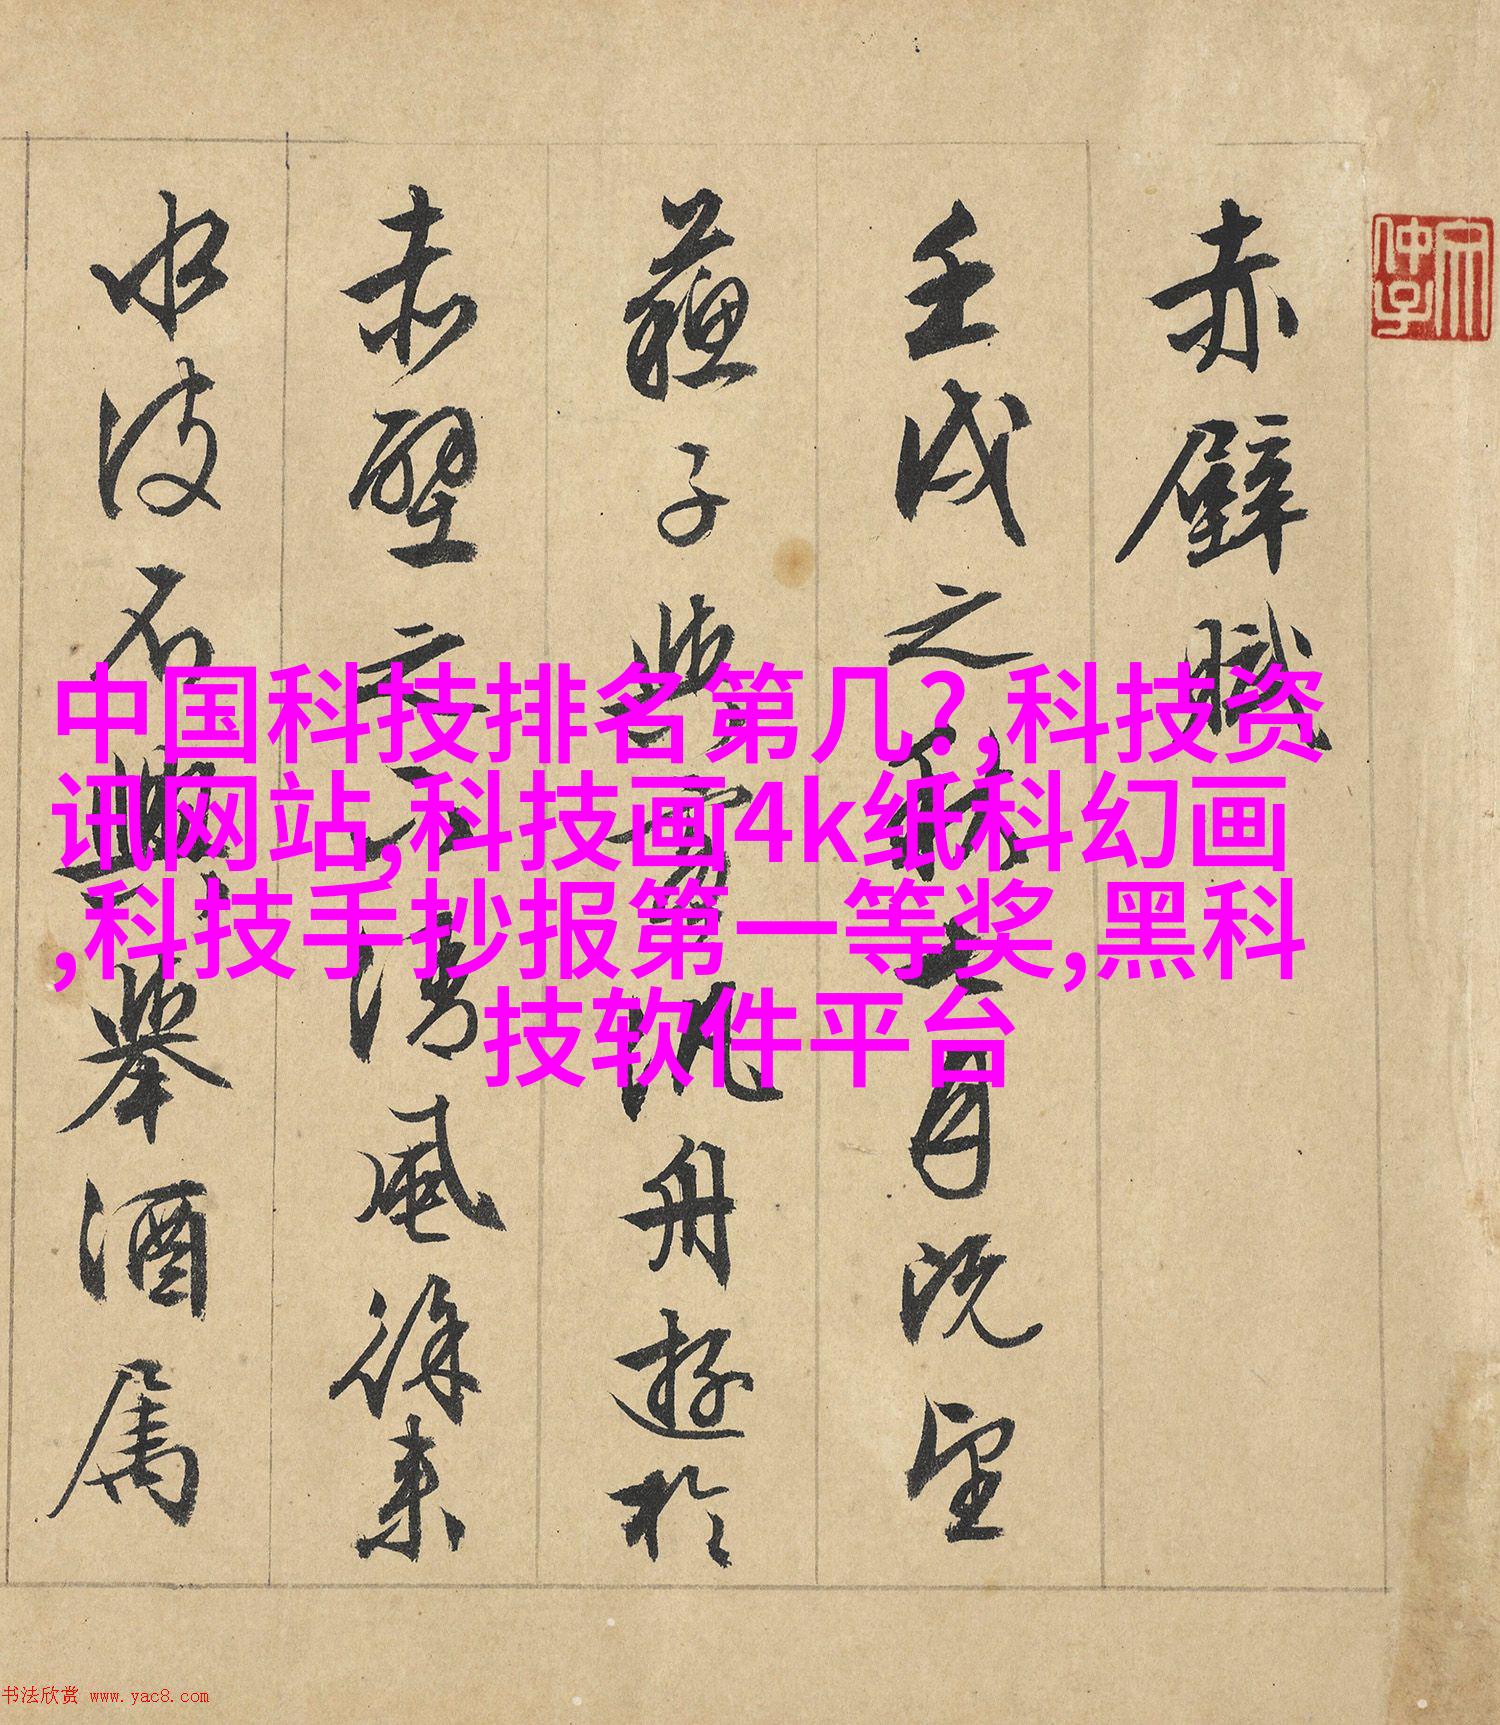 赤壁賦
壬戌之秋七月既望
蘇子與客泛舟遊於
赤壁之下清風徐來
水波不興舉酒屬
中国科技排名第几?,科技资
讯网站,科技画4k纸科幻画
,科技手抄报第一等奖,黑科
技软件平台
书法欣赏 www.yac8.com